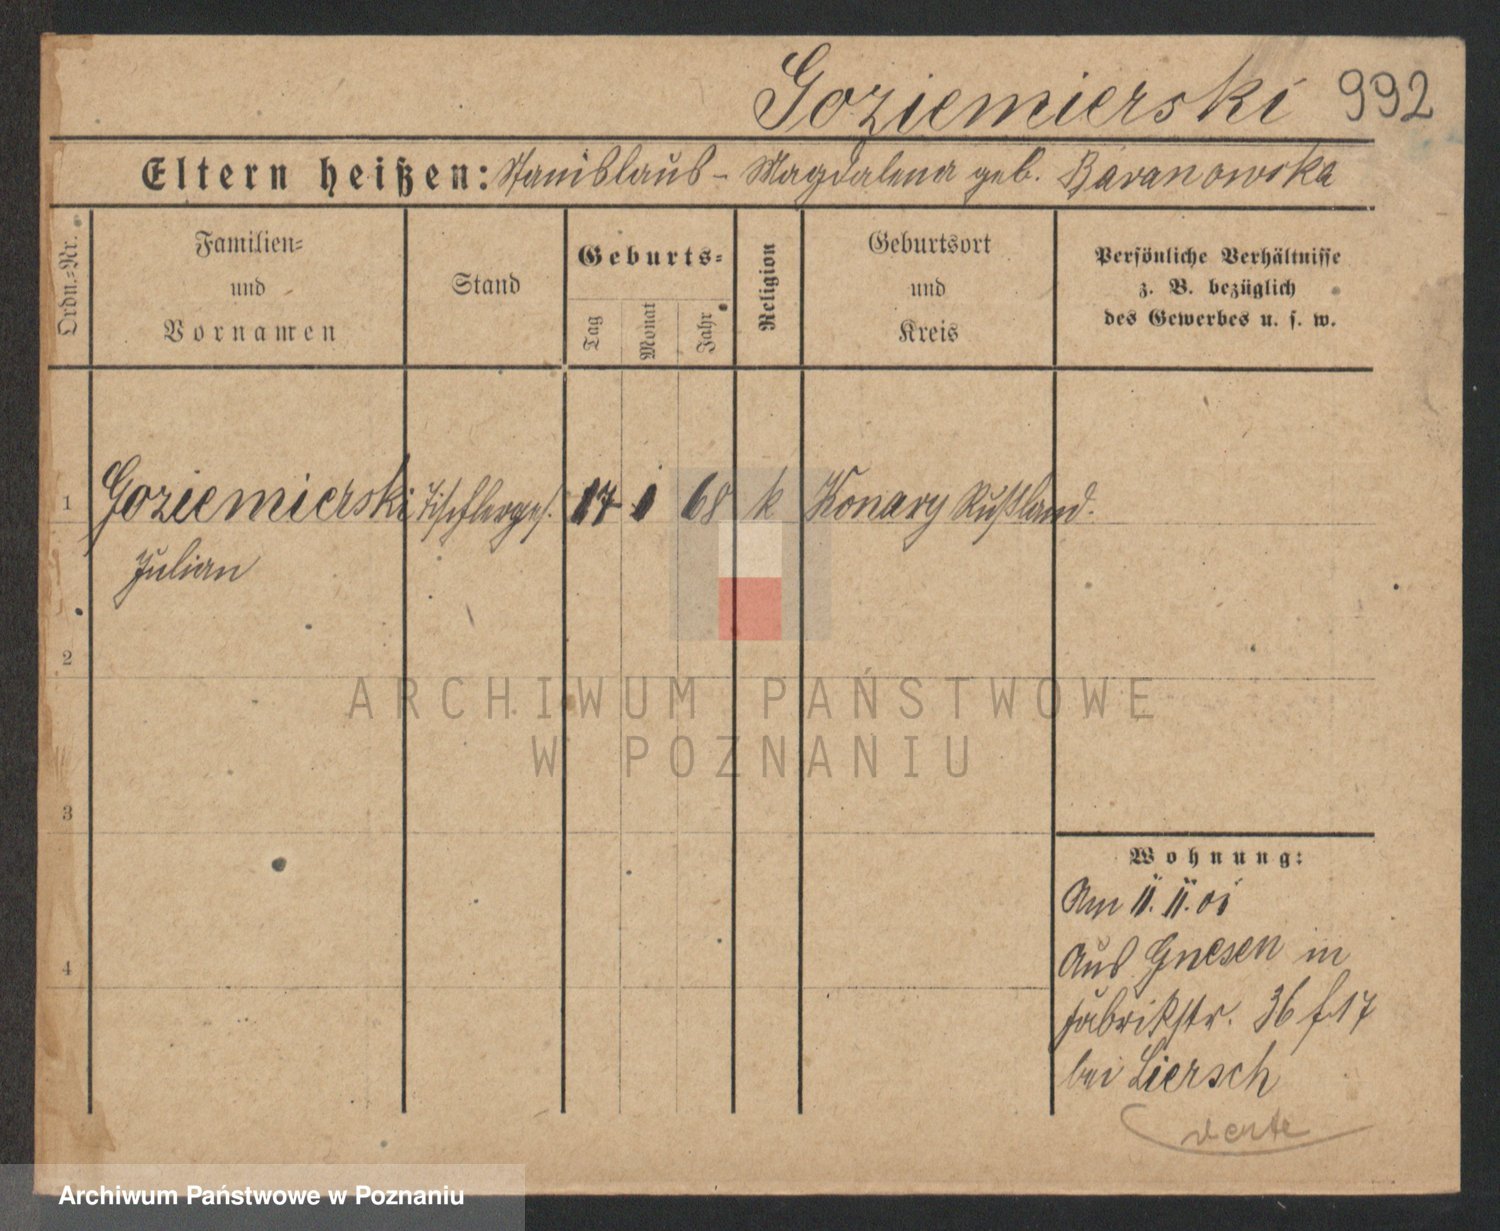 Goziemierski 992
Eltern heißen: Stanislaus - Magdalena geb. Baranowska
Ordn.-Nr.
Familien-
und
Vornamen
Stand
Geburts-
Tag
Monat
Jahr
Religion
Geburtsort
und
Kreis
Persönliche Verhältnisse
z. B. bezüglich
des Gewerbes u. s. w.
1 Goziemierski Tischlerges. 17 1 68 k Konary Rußland.
Julian
2
ARCHIWUM PAŃSTWOWE
W POZNANIU
3
4
Wohnung:
Am 11. 11. 01
Aus Gnesen in
Fabrikstr. 36 f 17
bei Liersch
verte
Archiwum Państwowe w Poznaniu